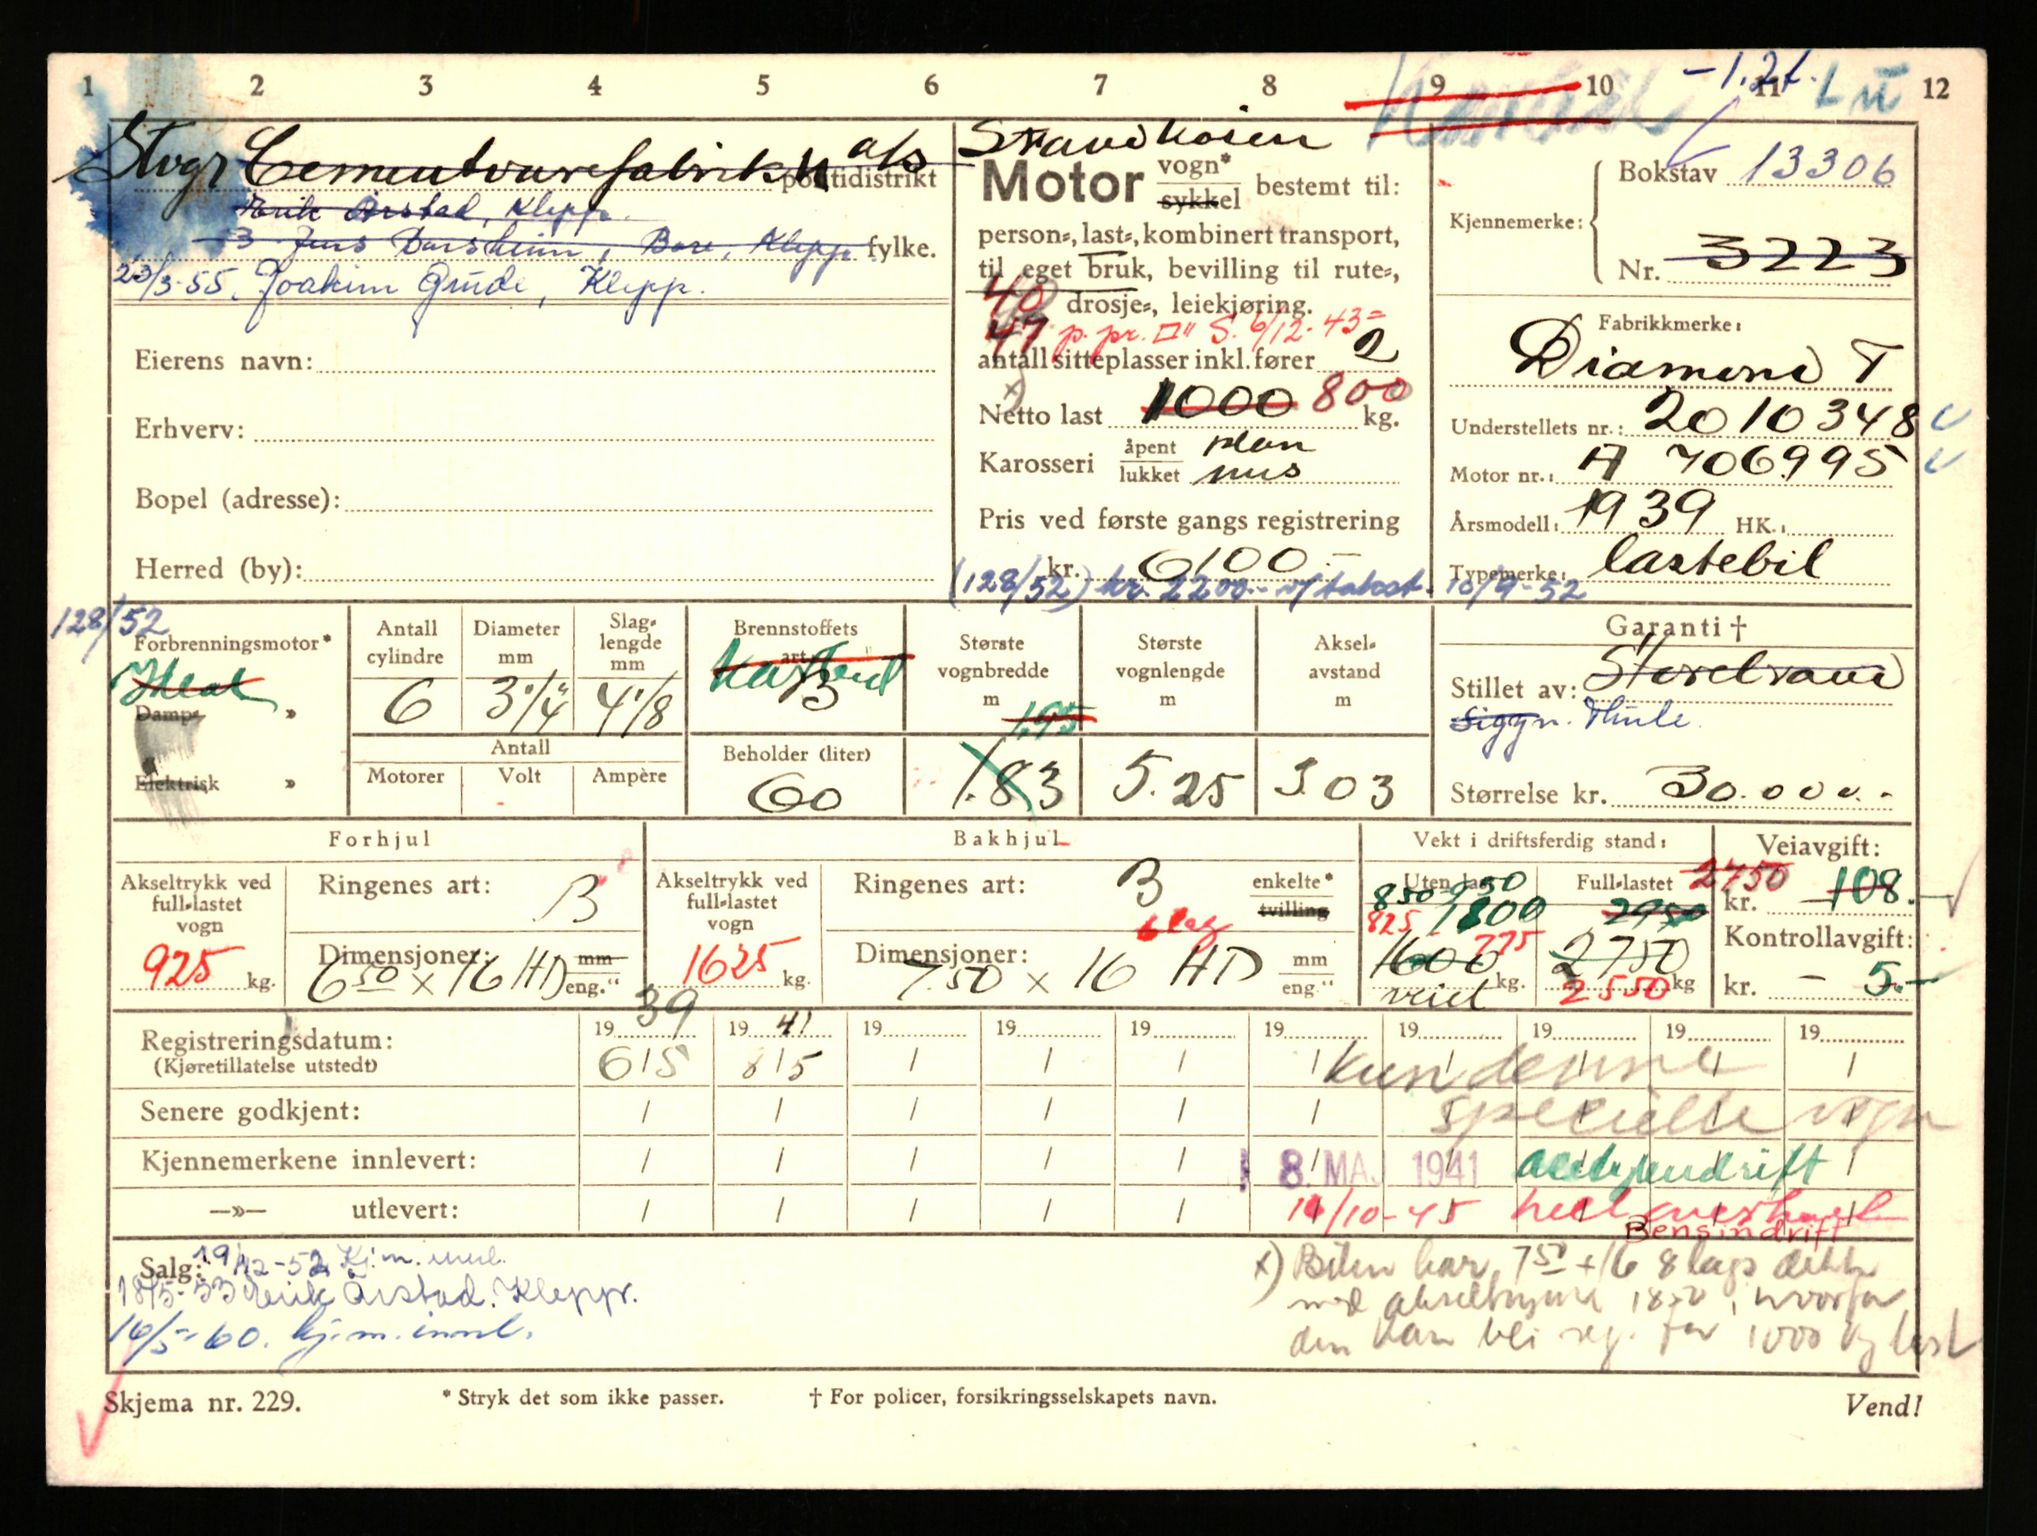 1 2 3 4 5 6 7 8 9 10 11 12
-1.2t. L II
Stvgr Cementvarefabrikk a/s Strandkaien
politidistrikt
Erik Årstad, Klepp.
Jens Dorsheim, Bore, Klepp. fylke.
23/3-55. Joakim Grude, Klepp.
Eierens navn:
Erhverv:
Bopel (adresse):
Herred (by):
Motor vogn* sykkel bestemt til:
person-, last-, kombinert transport,
til eget bruk, bevilling til rute-,
40 drosje-, leiekjøring.
47 p. pr. □" S. 6/12-43=
antall sitteplasser inkl. fører 2
x)
Netto last 1000 800 kg.
Karosseri åpent plan
lukket hus
Pris ved første gangs registrering
kr. 6100.-
(128/52) kr. 2200.- v/takst. 10/9-52
Kjennemerke: Bokstav 13306
Nr. 3223
Fabrikkmerke:
Diamond T
Understellets nr.: 2010348
Motor nr.: A 706995
Årsmodell: 1939 HK.:
Typemerke: lastebil
128/52
Forbrenningsmotor*
Damp- »
Elektrisk »
Antall cylindre 6
Diameter mm 3 1/4"
Slaglengde mm 4 1/8
Antall
Motorer Volt Ampère
Brennstoffets art: B
Beholder (liter) 60
Største vognbredde m 1.95
1.83
Største vognlengde m 5.25
Akselavstand m 3.03
Garanti †
Stillet av: Storebrand
Sigyn. Thule.
Størrelse kr. 30.000.-
Forhjul
Akseltrykk ved full-lastet vogn 925 kg.
Ringenes art: B
Dimensjoner: 6 50 x 16 HD mm eng."
Bakhjul
Akseltrykk ved full-lastet vogn 1625 kg.
Ringenes art: B enkelte* tvilling
6 lag
Dimensjoner: 7.50 x 16 HD mm eng."
Vekt i driftsferdig stand:
Uten last
850 950
825 1800 775
1600 kg.
veiet
Full-lastet 2750
2950
2750
2550 kg
Veiavgift:
kr. 108.-
Kontrollavgift:
kr. - 5.-
Registreringsdatum: 19 39 19 41 19 19 19 19 19 19 19 19
(Kjøretillatelse utstedt) 6/5 8/5
kun denne
Senere godkjent: specielle vogn
Kjennemerkene innlevert: 8. MAI 1941 acetylendrift
—»— utlevert: 10/10-45
Bensindrift
Salg: 19/12-52 Kj.m. innl.
18/5-53 Erik Årstad. Klepp.
16/5-60. kj.m. innl.
x) Bilen har 7 50 x 16 8 lags dekk
med akseltrykk 1820, hvorfor
den kan bli reg. for 1000 kg last
Skjema nr. 229. * Stryk det som ikke passer. † For policer, forsikringsselskapets navn. Vend!